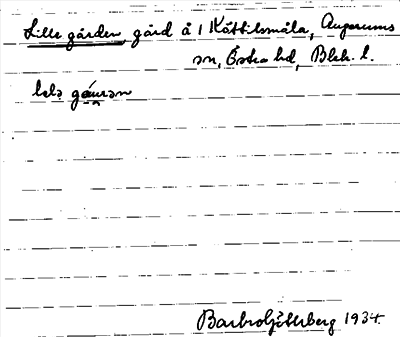 Lille gården, gård å 1 Kättilsmåla, Augerums
sn, Östra hd, Blek. l.
Barbro Götterberg 1934.